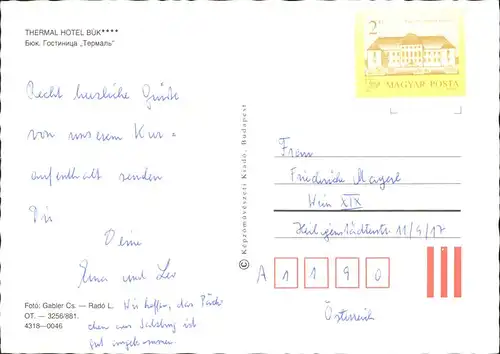 THERMAL HOTEL BÜK****
Бюк. Гостиница „Термаль"
2 Ft
MAGYAR POSTA
Recht herzliche Grüße
von unserem Kur=
aufenthalt senden
Dir
Deine
Erna und Leo
Wir hoffen, das Päck
chen aus Salzburg ist
gut angekommen.
Fotó: Gabler Cs. — Radó L.
OT. — 3256/881.
4318—0046
© Képzőművészeti Kiadó, Budapest
Frau
Friederike
Wien XIX
Heiligenstädterstr. 11/9/17
A 1190
Österreich